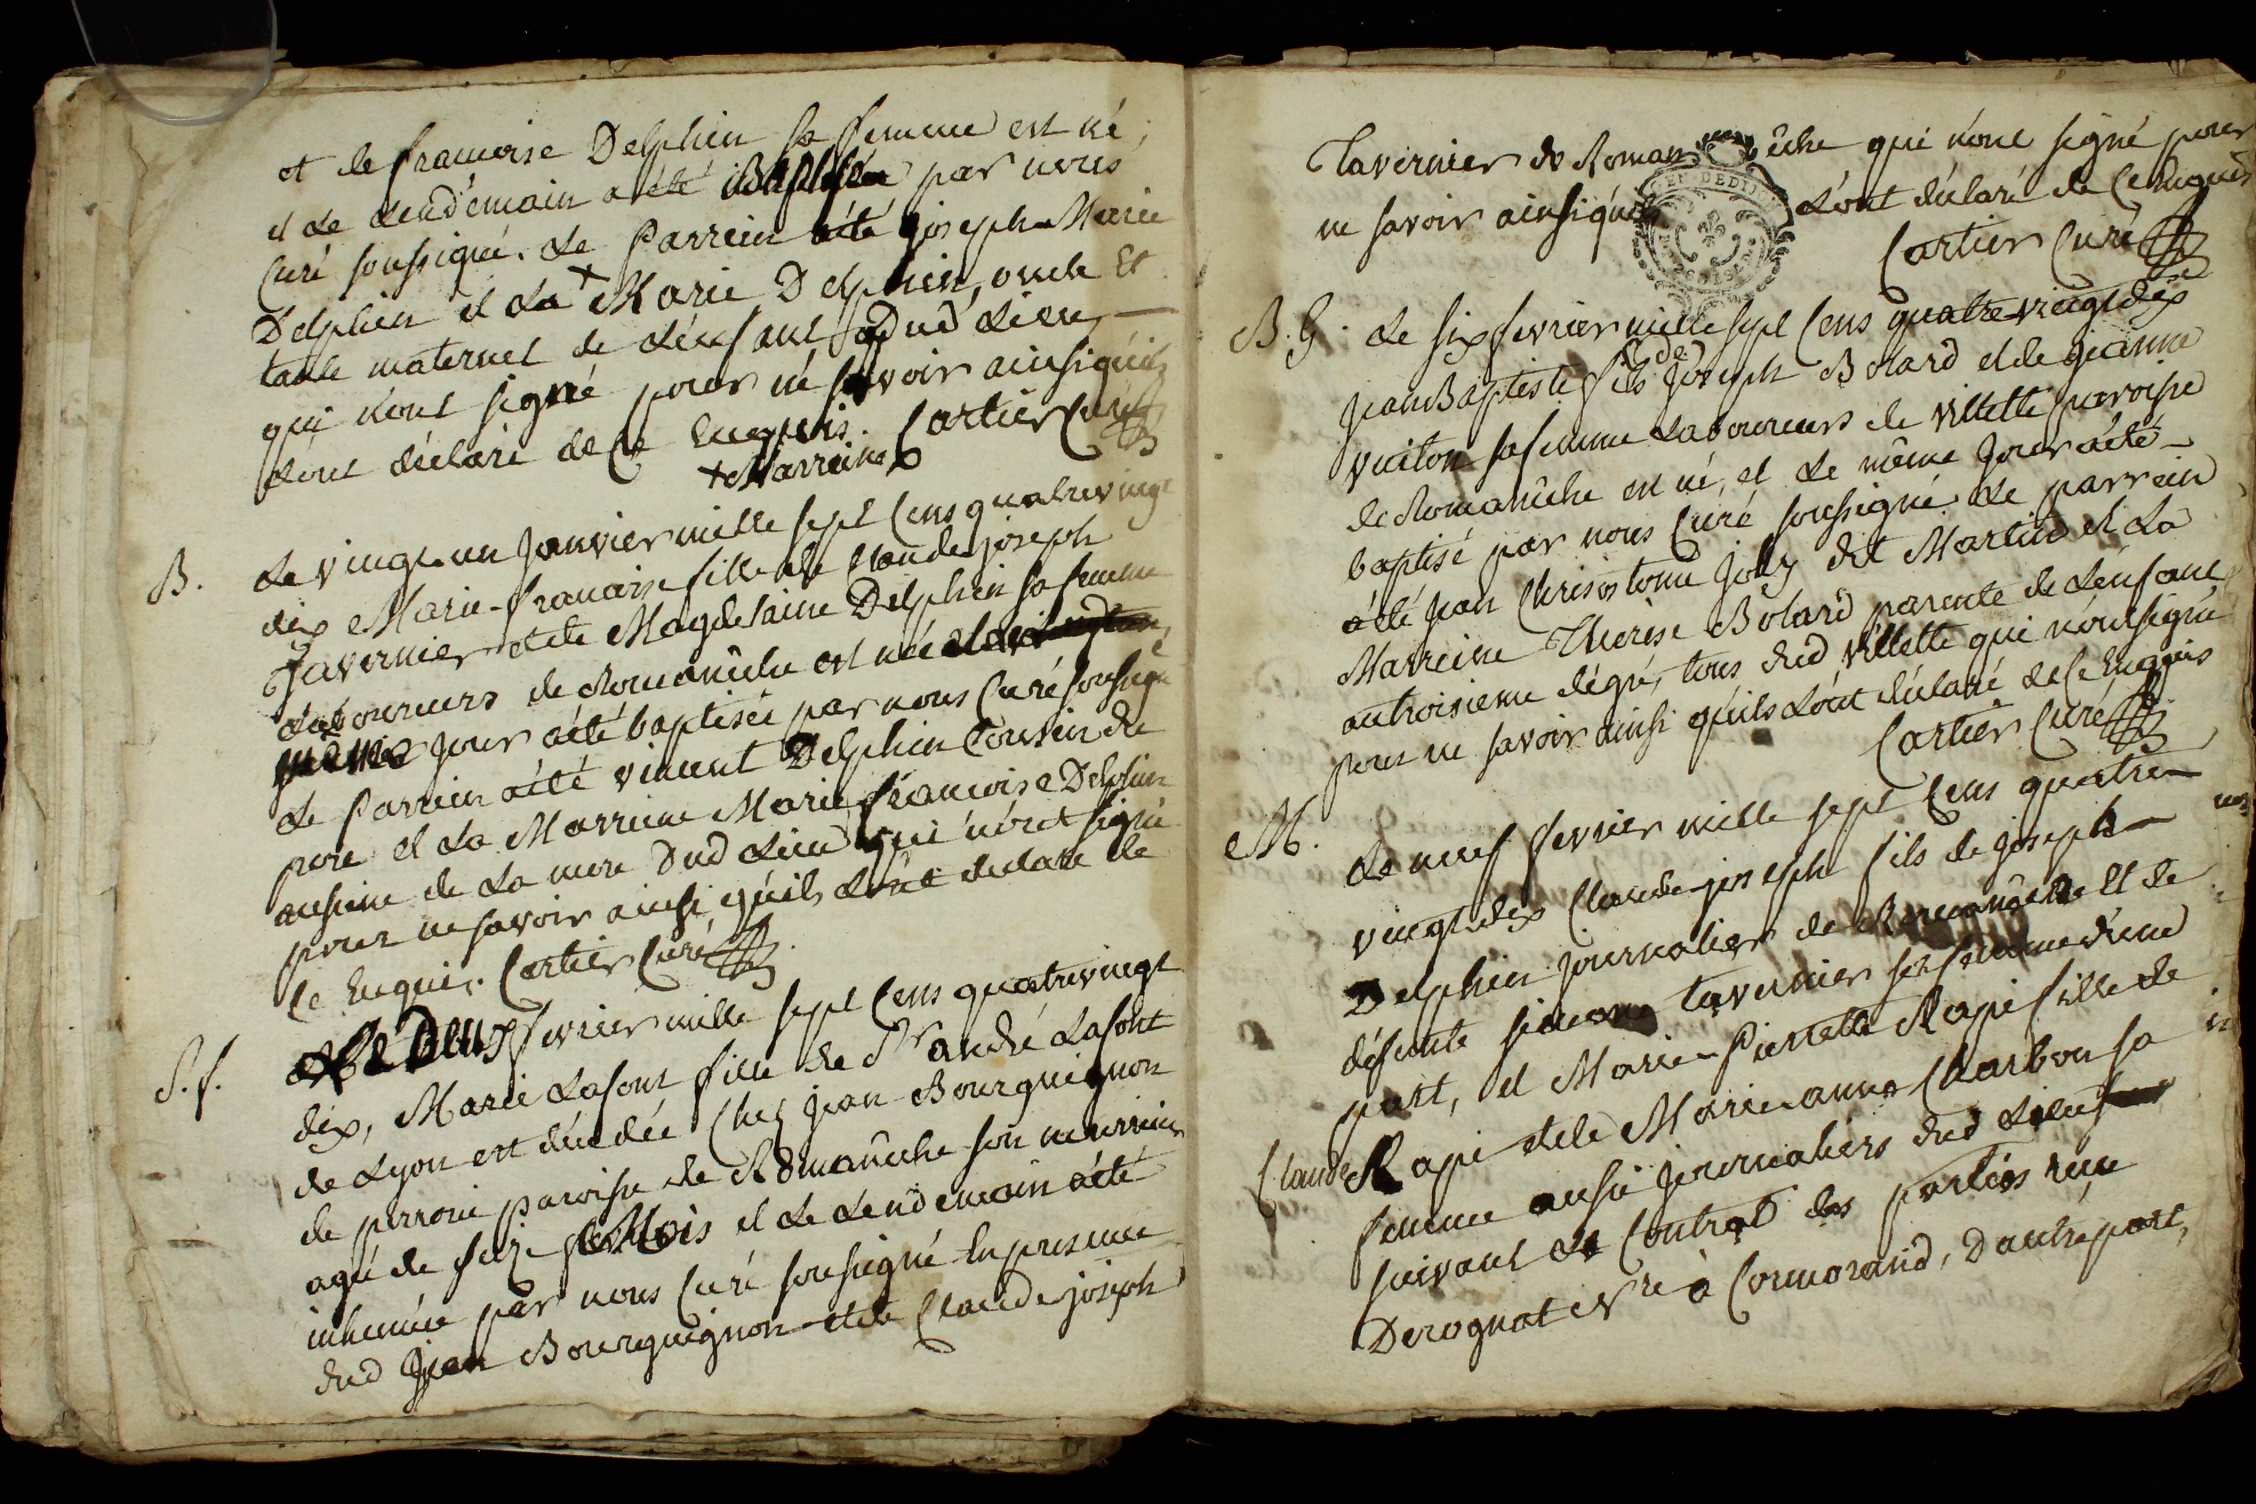 et de francoise Delphin sa femme est né,
et le lendemain a été Baptisée par nous
Curé soussigné. le Parrein a été joseph Marie
Delphin et la + Marie Delphin, oncle Et
tante maternel de l'enfant dud lieu —
qui n'ont signé pour ne savoir ainsi qu'ils
l'ont déclaré de ce Enquis. Cartier Curé
+ Marreine
B. le vingt un Janvier mille sept Cens quatre vingt
dix Marie-francoise fille de Claude joseph
Tavernier et de Magdelaine Delphin sa femme
laboureurs de Romanêche est née
même jour a été baptisée par nous Curé soussigné
le Parrein a été vincent Delphin Cousin du
pere et la Marreine Marie francoise Delphin
cousine de la mere Dud lieu qui n'ont signé
pour ne savoir ainsi qu'ils l'ont déclaré de
ce Enquis. Cartier Curé
S. f. Le Deux fevrier mille sept Cens quatre vingt
dix, Marie Lafont fille de Sr andré Lafont
de Lyon est décédée Chez Jean Bourguignon
de perroni paroisse de Romanêche son nourricier
agé de seize Mois et le lendemain a été
inhumée par nous Curé soussigné En presence
dud Jean Bourguignon et de Claude joseph
Tavernier de Romanêche qui n'ont signé pour
ne savoir ainsi qu'ils l'ont déclaré de ce Enquis
Cartier Curé
B. G. le six fevrier mille sept Cens quatre vingt dix
Jean Baptiste fils de Joseph Bolard et de jeanne
vuiton sa femme laboureurs de villette paroisse
de Romanêche est né, et le même jour a été —
baptisé par nous Curé soussigné le parrein
a été Jean Chrisostome Joly dit Martin et la
Marreine Therese Bolard parente de l'enfant
au troisieme dégré, tous dud villette qui n'ont signé
pour ne savoir ainsi qu'ils l'ont déclaré de ce Enquis
Cartier Curé
M. le neuf fevrier mille sept Cens quatre
vingt dix Claude-joseph fils de joseph
Delphin journalier de Romanêche Et de
défunte simone tavernier sa femme d'une
part, et Marie-Pierrette Rapé fille de
Claude Rapé et de Marie anne Charbon sa
femme aussi journaliers dud lieu
suivant le Contrat des parties reçu
Derognat Nre à Cormorand, D'autre part,